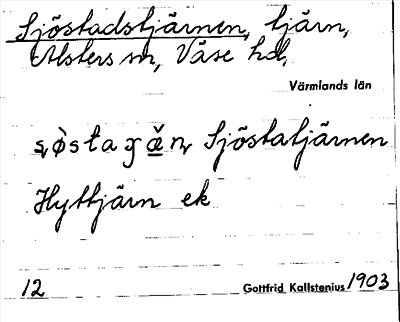 Sjöstadstjärnen, tjärn,
Alsters sn, Väse hd,
Värmlands län
Sjöstatjärnen
Hyttjärn ek
12 Gottfrid Kallstenius 1903